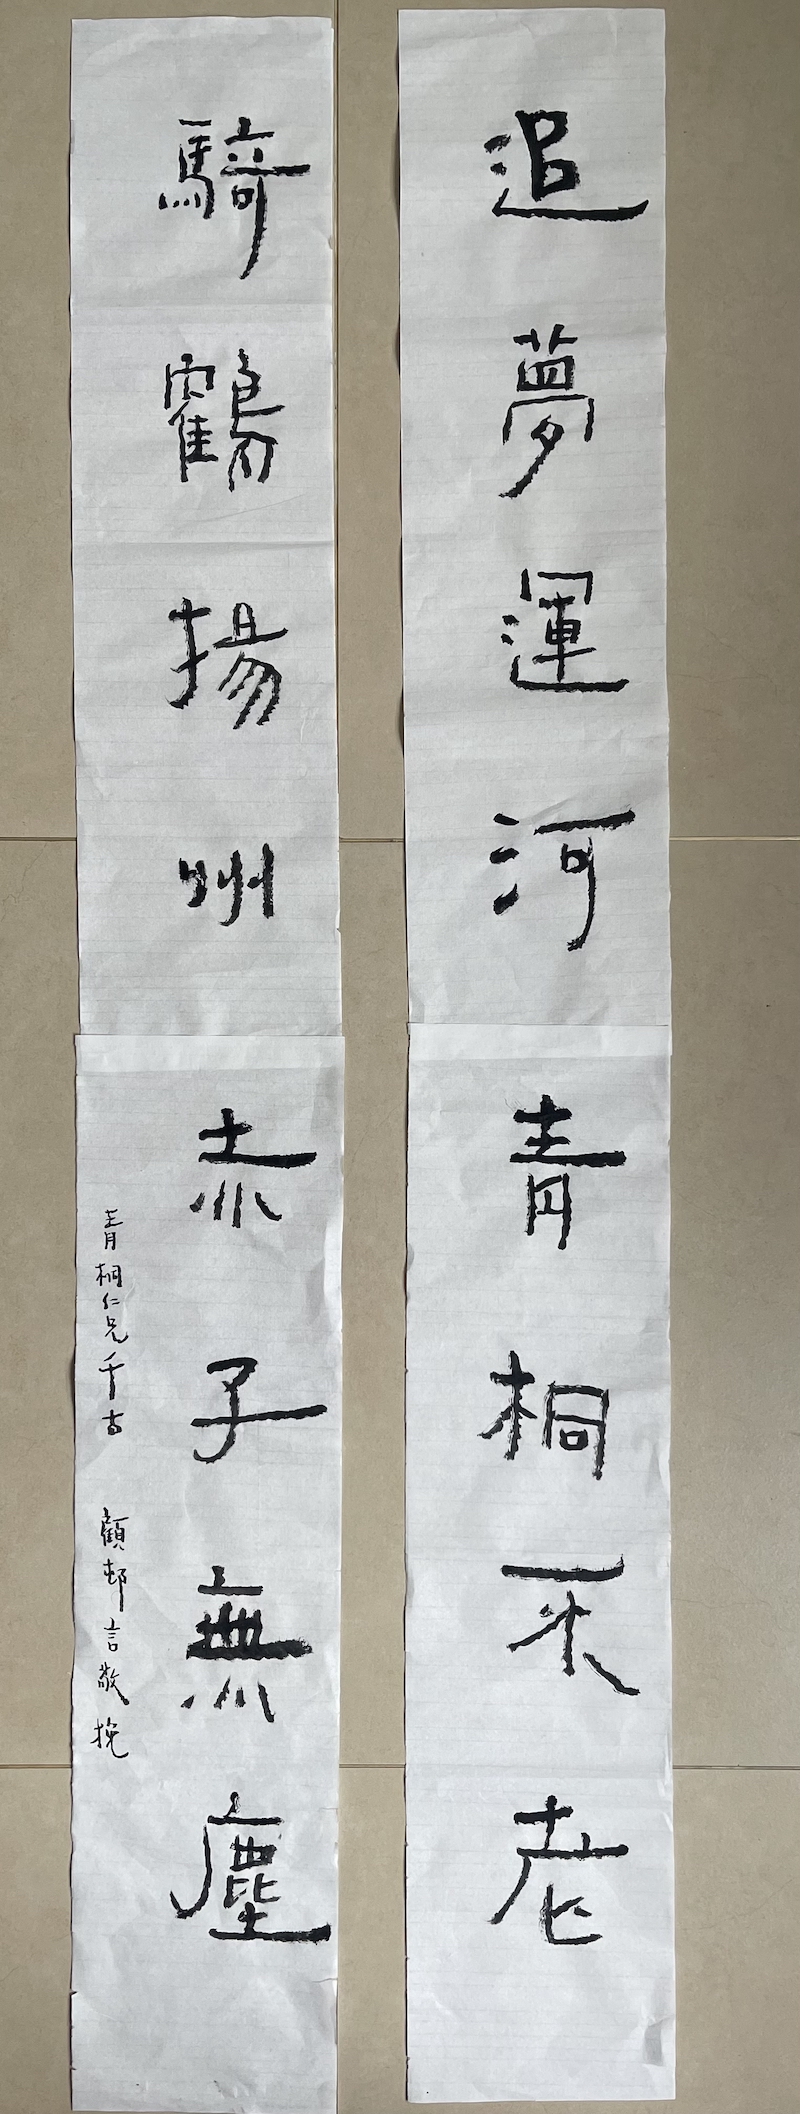 追夢運河青桐不老
騎鶴揚州赤子無塵
青桐仁兄千古 顧邨言敬挽